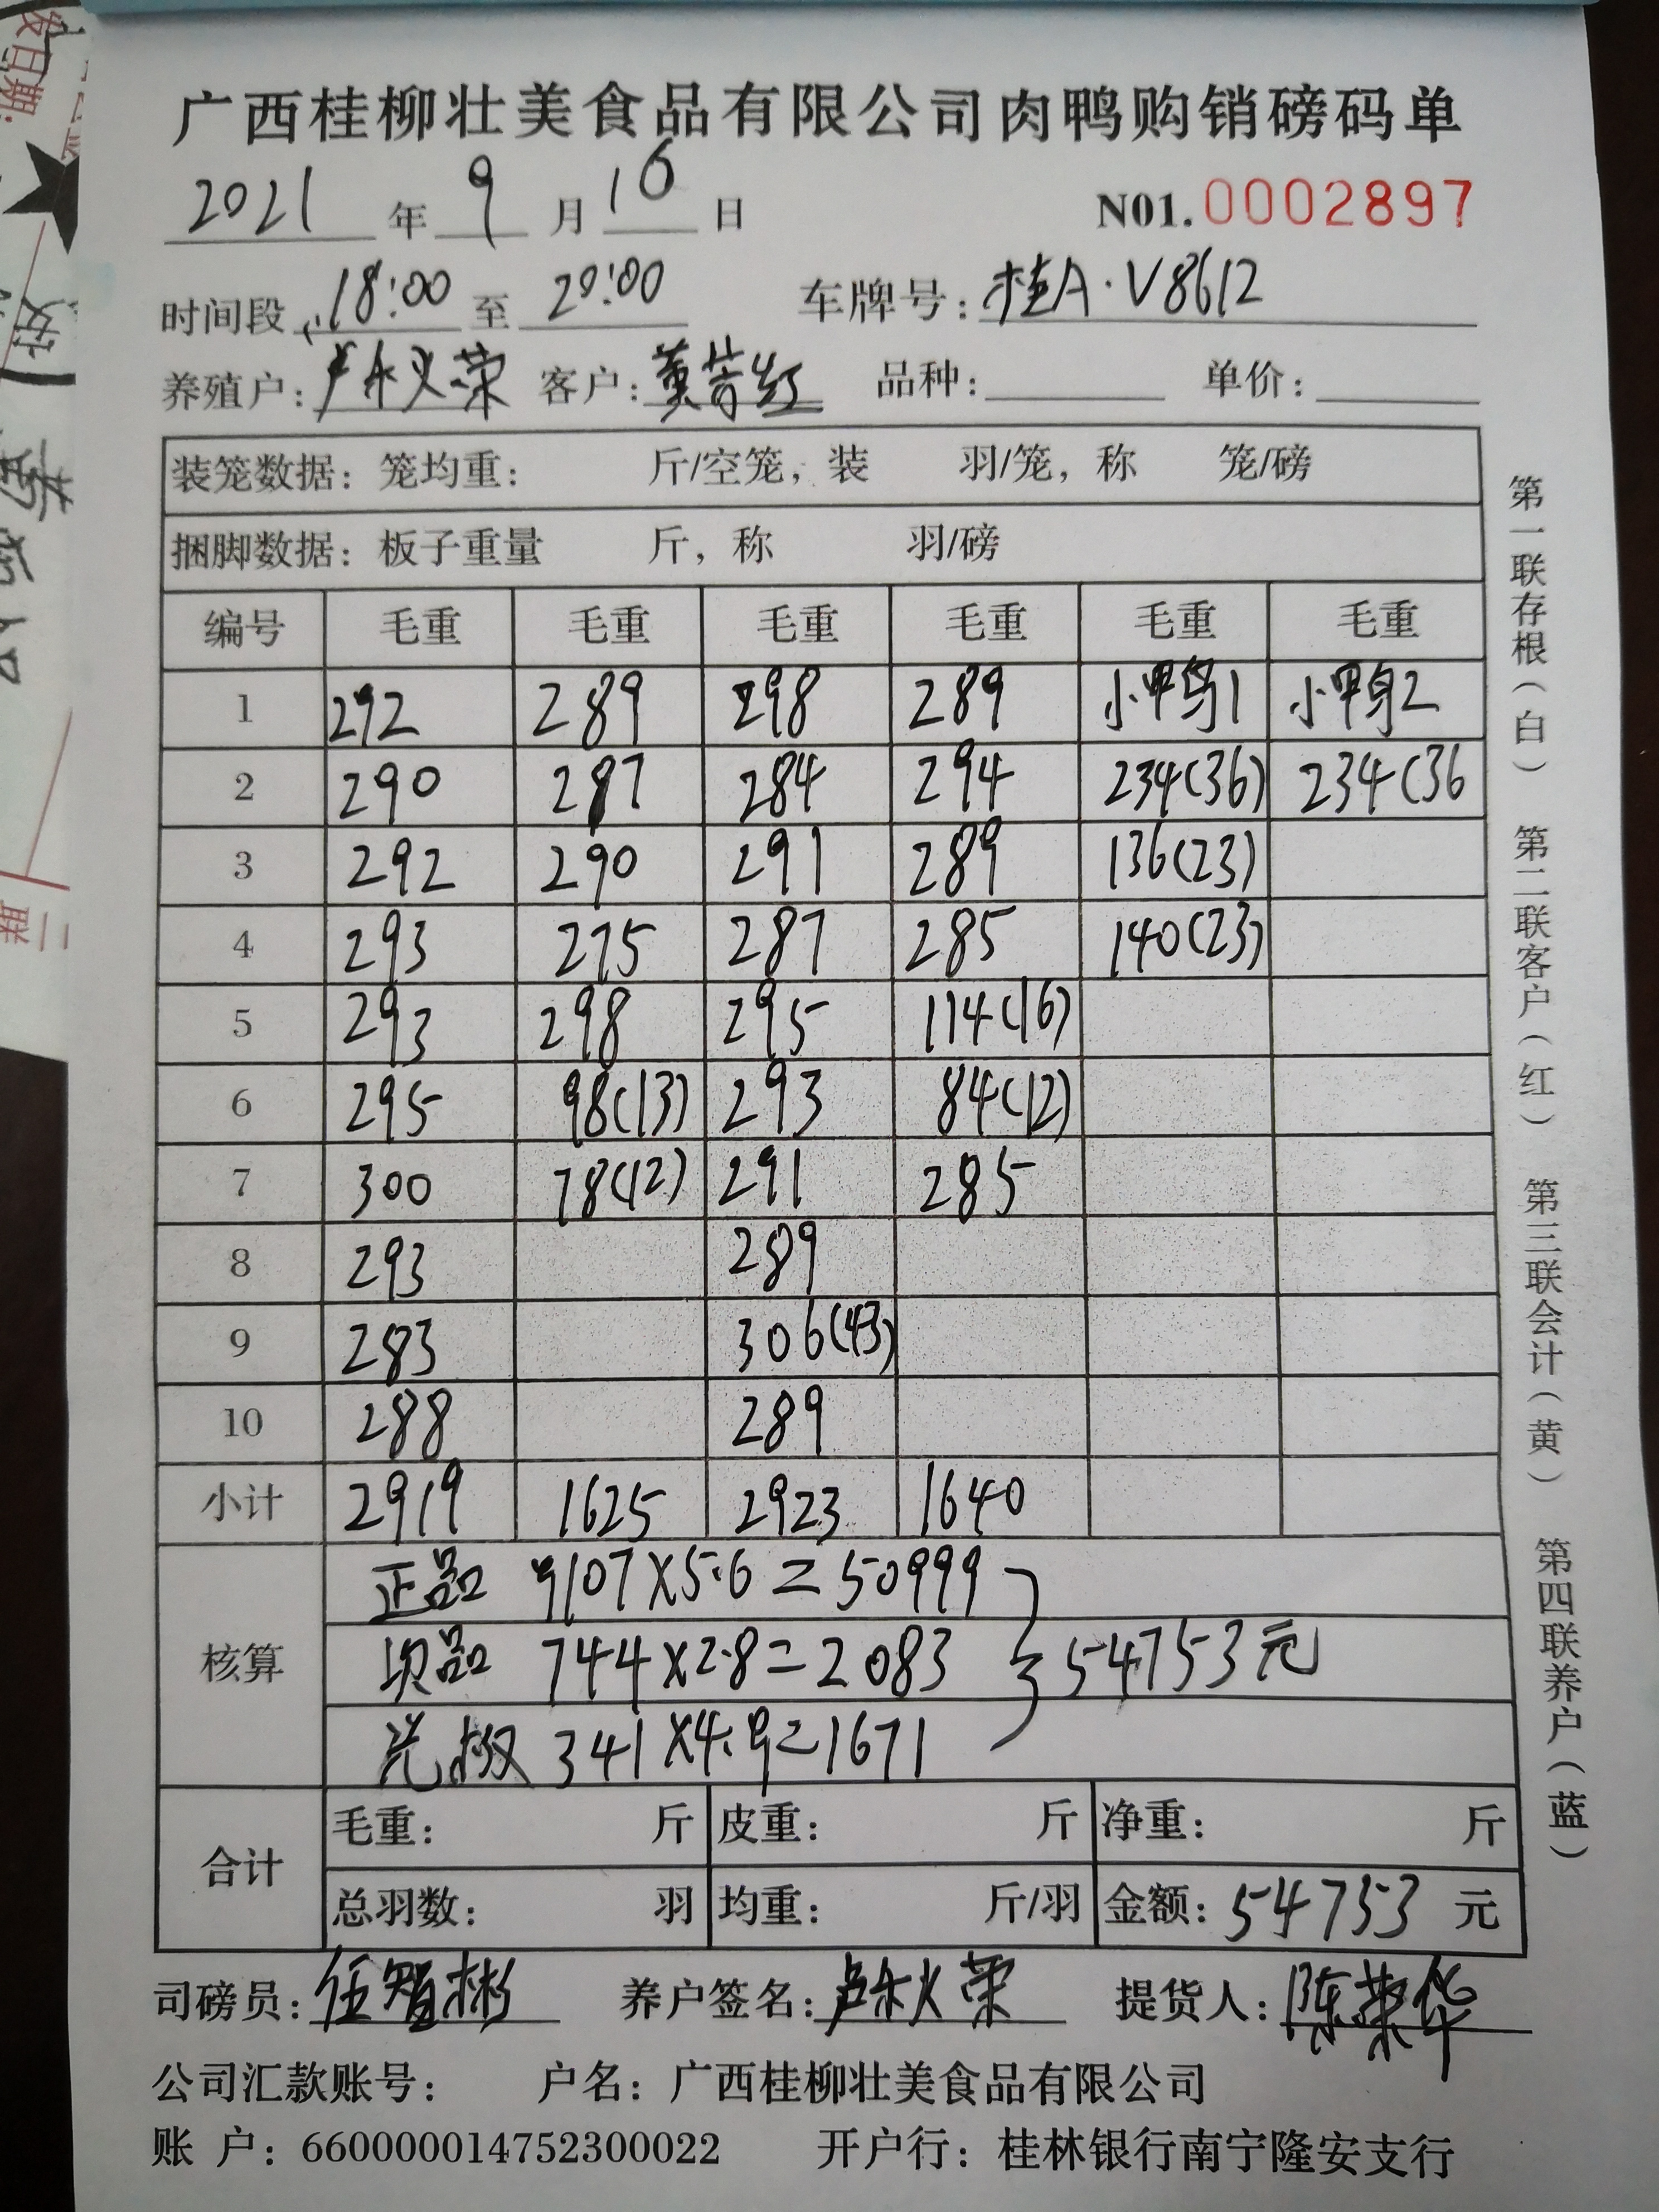 广西桂柳壮美食品有限公司肉鸭购销磅码单
2021 年 9 月 16 日 N01. 0002897
时间段 18:00 至 20:00 车牌号: 桂A·V8612
养殖户: 卢永义荣 客户: 黄苦红 品种: 单价:
装笼数据: 笼均重: 斤/空笼, 装 羽/笼, 称 笼/磅
捆脚数据: 板子重量 斤, 称 羽/磅
编号 毛重 毛重 毛重 毛重 毛重 毛重
1 292 289 298 289 小鸭1 小鸭2
2 290 287 284 294 234(36) 234(36
3 292 290 291 289 136(23)
4 293 275 287 285 140(23)
5 293 298 295 114(16)
6 295 98(13) 293 84(12)
7 300 78(12) 291 285
8 293 289
9 283 306(43)
10 288 289
小计 2919 1625 2923 1640
核算
正品 9107×5.6=50999
品 744×2.8=2083 54753元
341×4.9=1671
合计
毛重: 斤 皮重: 斤 净重: 斤
总羽数: 羽 均重: 斤/羽 金额: 54753 元
司磅员: 任智彬 养户签名: 提货人: 陈荣华
公司汇款账号: 户名: 广西桂柳壮美食品有限公司
账 户: 660000014752300022 开户行: 桂林银行南宁隆安支行
第一联存根(白) 第二联客户(红) 第三联会计(黄) 第四联养户(蓝)